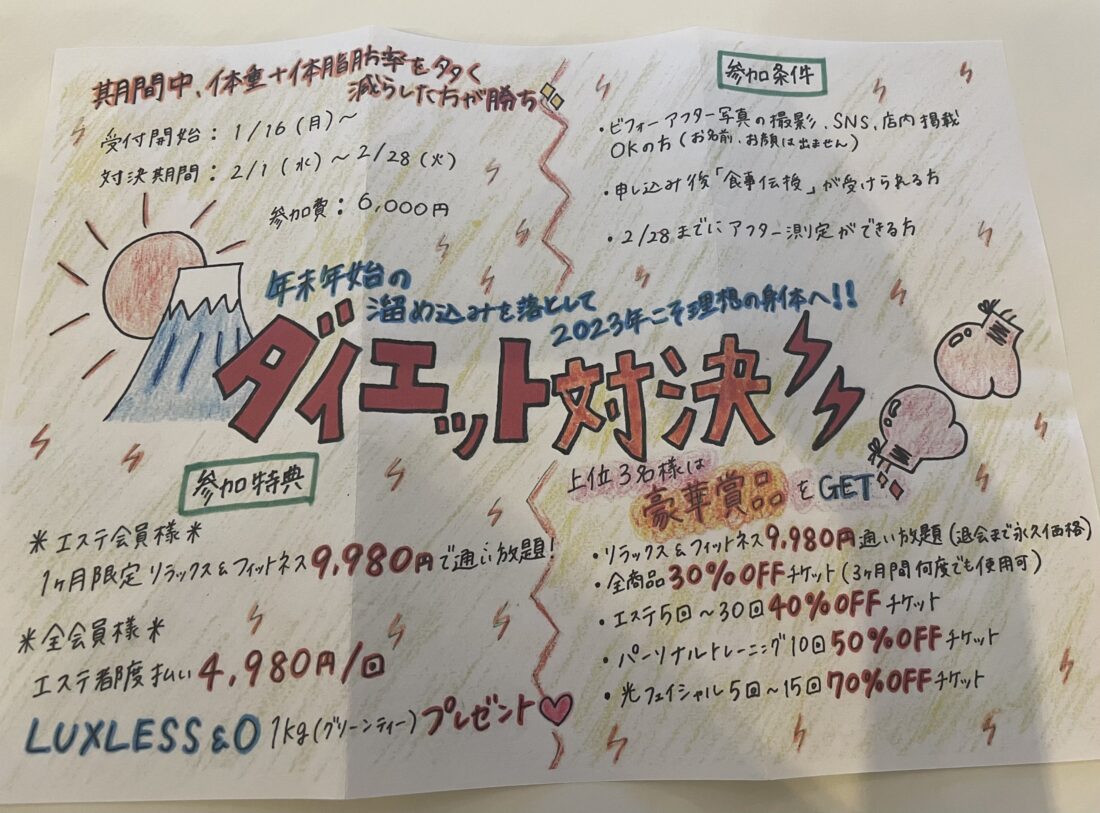 期間中、体重+体脂肪率を多く
減らした方が勝ち
受付開始：1/16(月)～
対決期間：2/1(水)～2/28(火)
参加費：6,000円
参加条件
・ビフォーアフター写真の撮影、SNS、店内掲載
OKの方(お名前、お顔は出ません)
・申し込み後「食事伝授」が受けられる方
・2/28までにアフター測定ができる方
年末年始の
溜め込みを落として
2023年こそ理想の身体へ!!
ダイエット対決
参加特典
*エステ会員様*
1ヶ月限定リラックス&フィットネス9,980円で通い放題!
*全会員様*
エステ都度払い4,980円/回
LUXLESS&O 1kg(グリーンティー)プレゼント
上位3名様は
豪華賞品をGET
・リラックス&フィットネス9,980円通い放題(退会まで永久価格)
・全商品30%OFFチケット(3ヶ月間何度でも使用可)
・エステ5回～30回40%OFFチケット
・パーソナルトレーニング10回50%OFFチケット
・光フェイシャル5回～15回70%OFFチケット